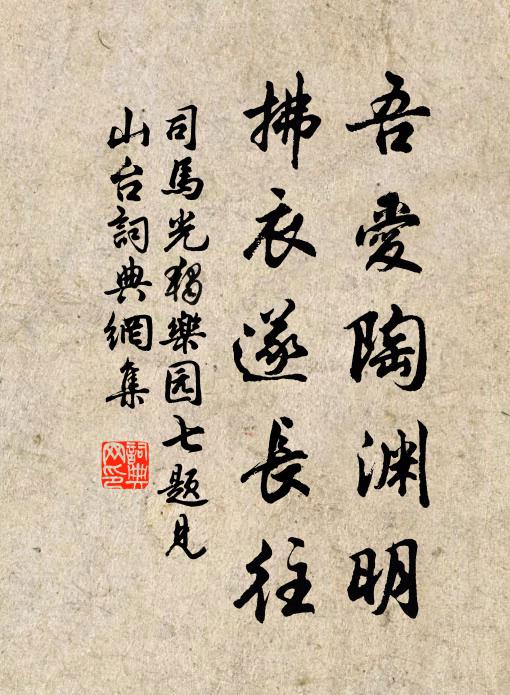 吾愛陶渊明
拂衣遂長往
司馬光獨樂园七题見
山台詞典網集
詞典网印